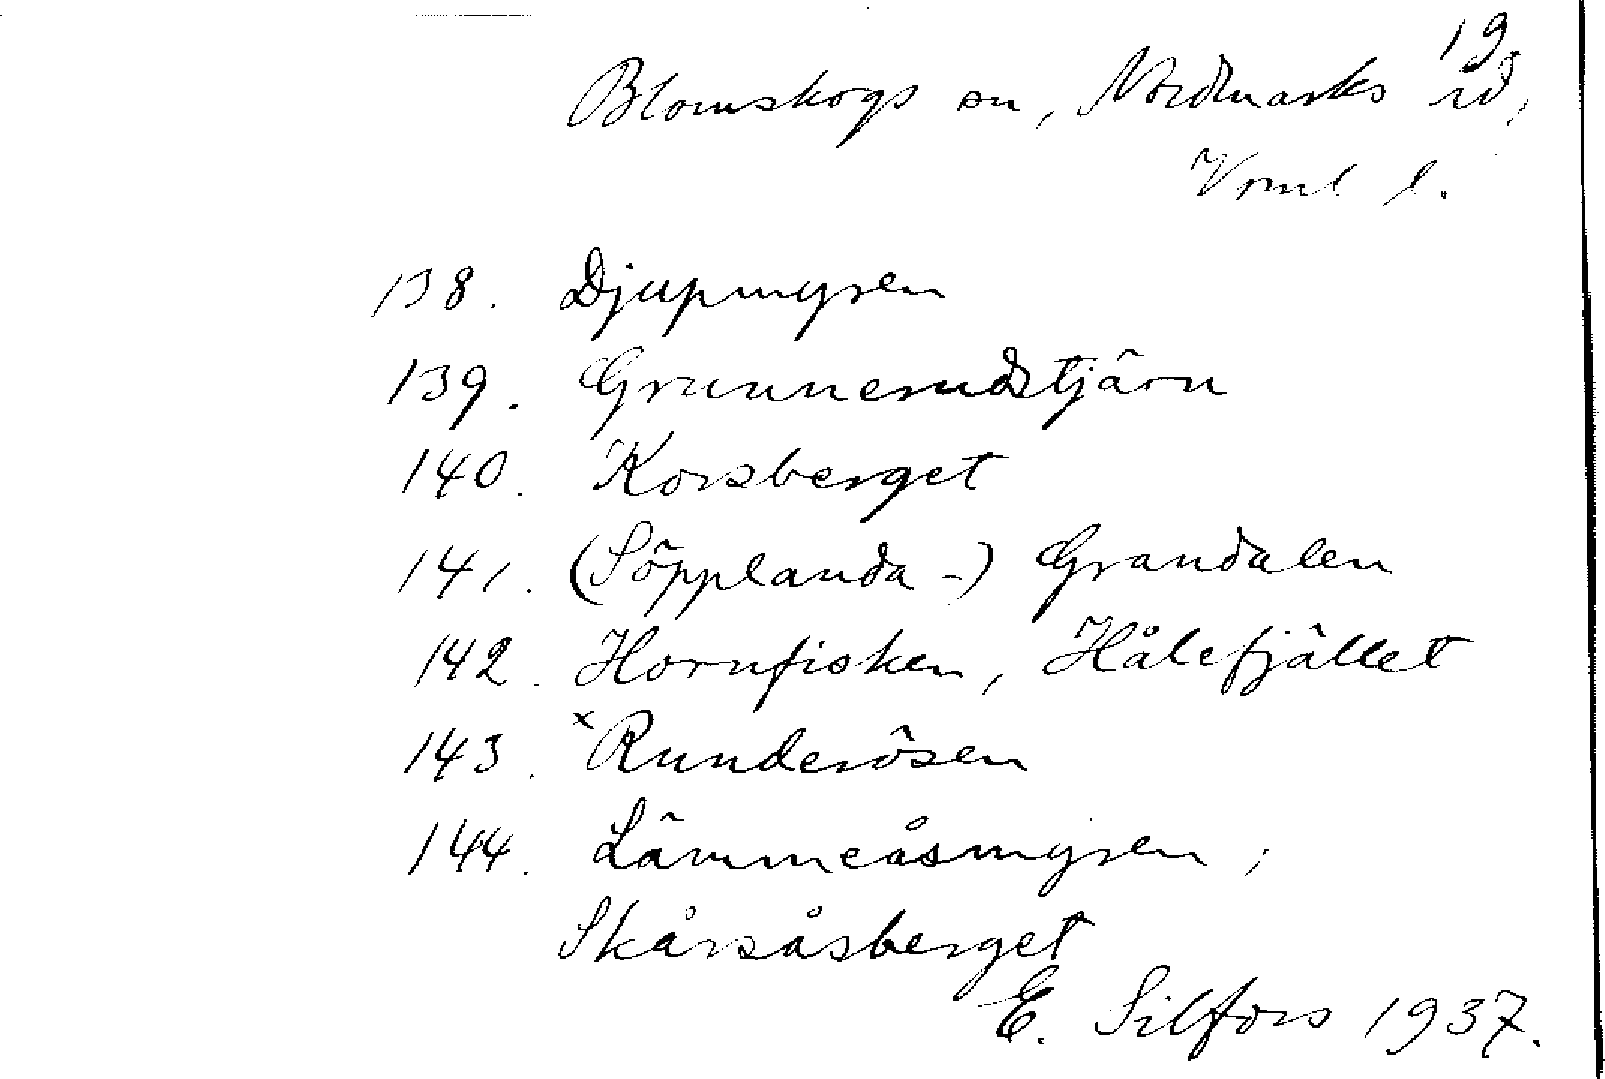 19
Blomskogs sn, Nordmarks hd,
Vrml l.
138. Djupmyren
139. Grunnerudstjärn
140. Korsberget
141. (Söpplanda-) Grandalen
142. Hornfisken, Hålefjället
143. ˣRunderösen
144. Lämmeåsmyren,
Skårsåsberget
E. Silfors 1937.